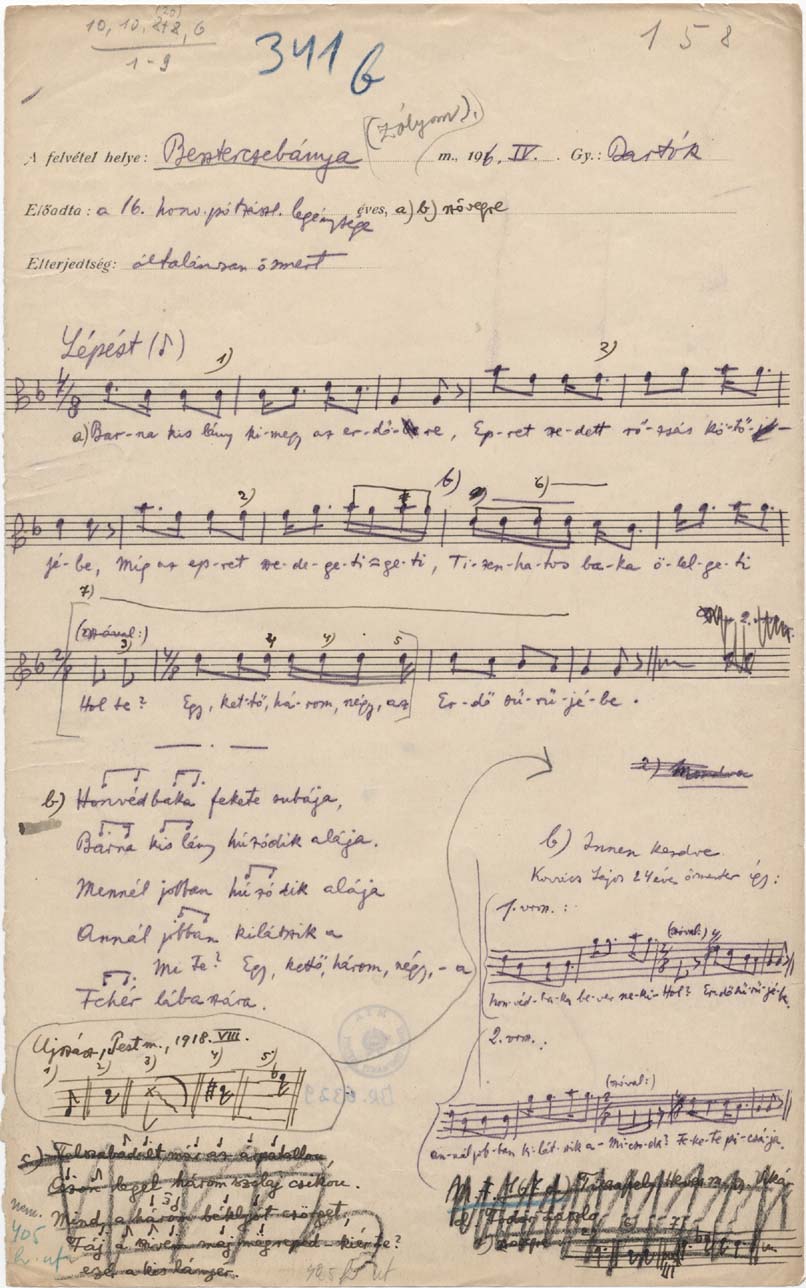 10, 10, 8+8, 6
1-9
341 b
158
(Zólyom).
A felvétel helye: Besztercebánya m., 1916. IV. Gy.: Bartók
Előadta: a 16. honv. pótzászl. legénysége éves, a) b) szövegre
Elterjedtség: általánosan ösmert
Lépést (♪)
1) 3)
a) Bar-na kis lány ki-megy az er-dő-re, Ep-ret sze-dett ró-zsás kö-tő-
2) b) 6)
jé-be, Míg az ep-ret sze-de-ge-ti-ge-ti, Ti-zen-ha-tos ba-ka ö-lel-ge-ti
7)
(szóval:) 3) 4) 5
Hol te? Egy, ket-tő, há-rom, négy, az Er-dő sű-rű-jé-be.
b) Honvédbaka fekete subája,
Barna kis lány húzódik alája.
Mennél jobban húzódik alája
Annál jobban kilátszik a
Mi te? Egy, kettő, három, négy, - a
Fehér lába szára.
2) Mondva
b) Innen kezdve
Kovács Lajos 24 éves őrmester így:
1. versz.:
(szóval:)
hon-véd-ba-ka be-ver ne-ki- Hol? Er-dő sű-rű-jé-be.
2. versz.:
(szóval:)
an-nál job-ban ki-lát-szik a- Mi-cso-da? Fe-ke-te pi-csája.
Ujszász, Pest m., 1918. VIII.
1) 2) 3) 4) 5)
BR. 6329
c) Felszabadult már az árpatallou,
legel három szolaj csikou.
Mind a három béklyót csörget,
Fáj a szivem maj megreped - kiér te?
ezér a kis lányér.
nem.
405